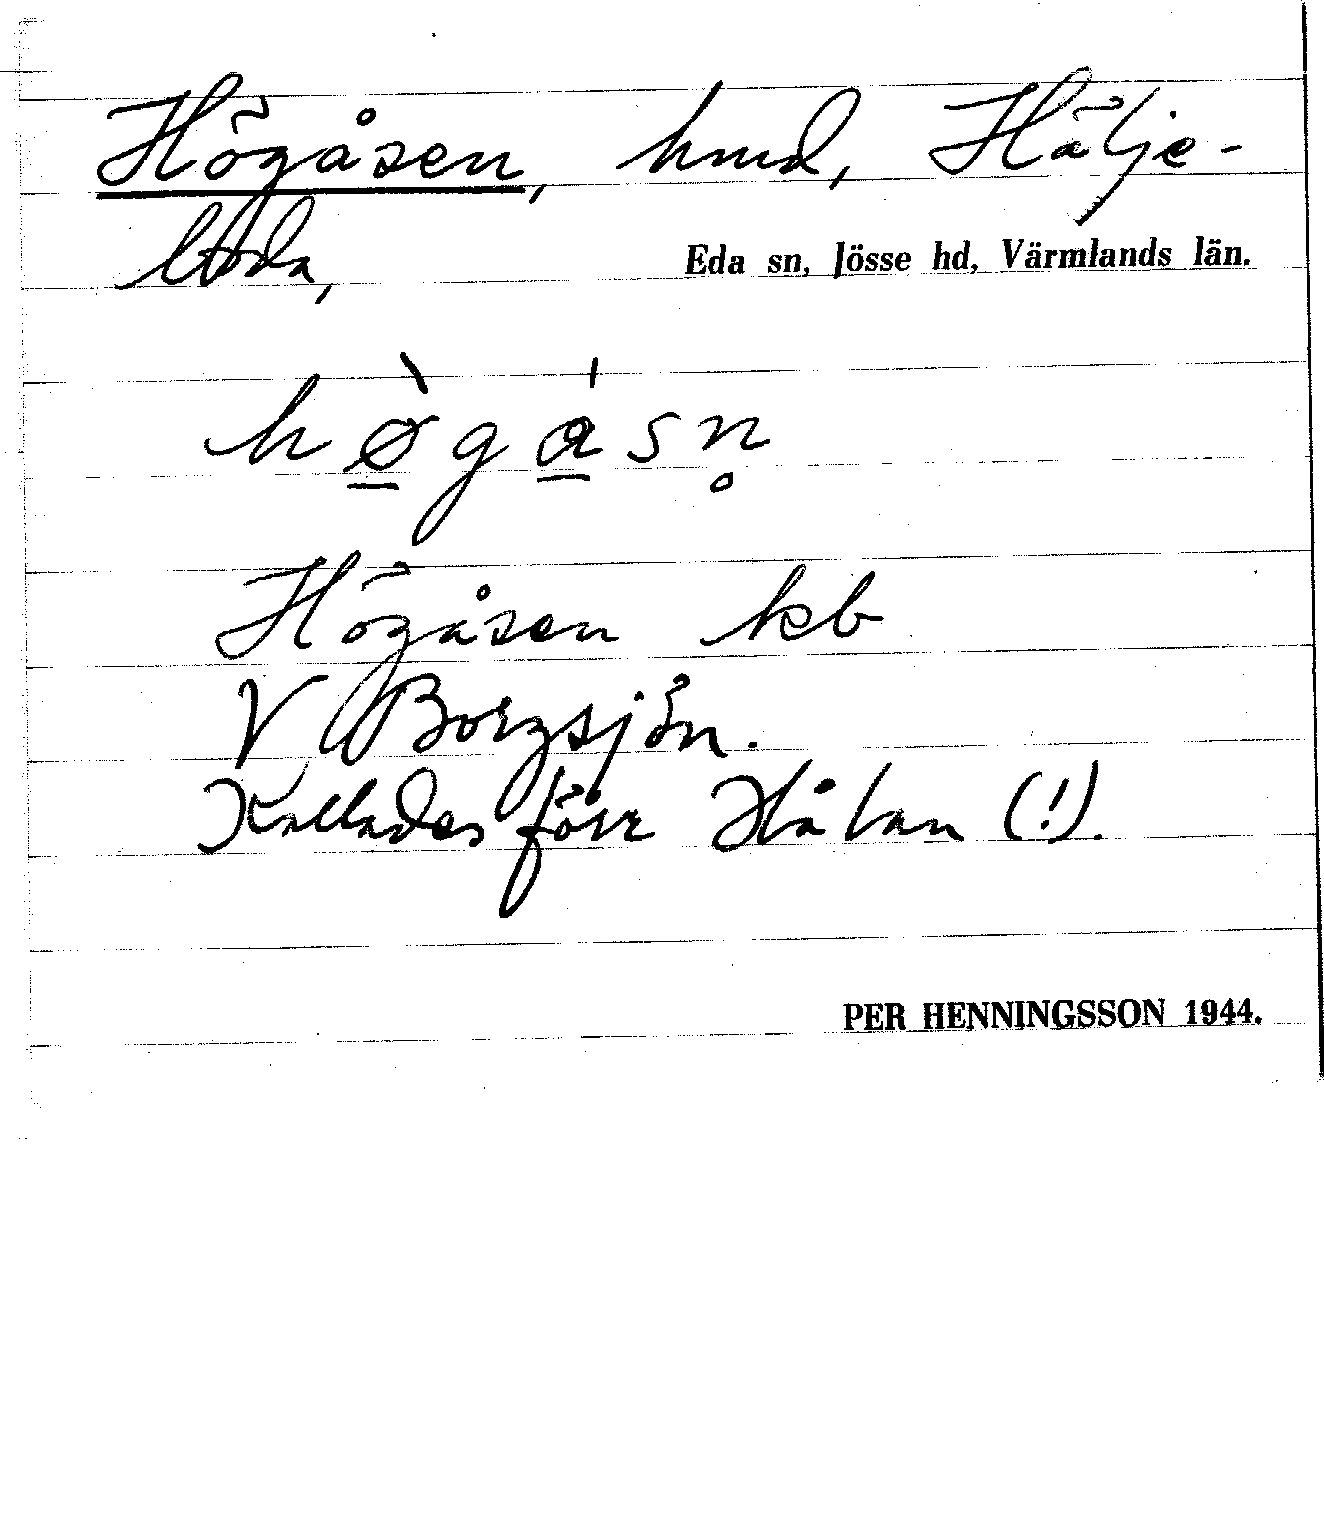 Högåsen, hmd, Hälje-
boda,
Eda sn, Jösse hd, Värmlands län.
hø̲̀gá̲sn̥
Högåsen kb
V Borgsjön.
Kallades förr Hålan (!).
PER HENNINGSSON 1944.